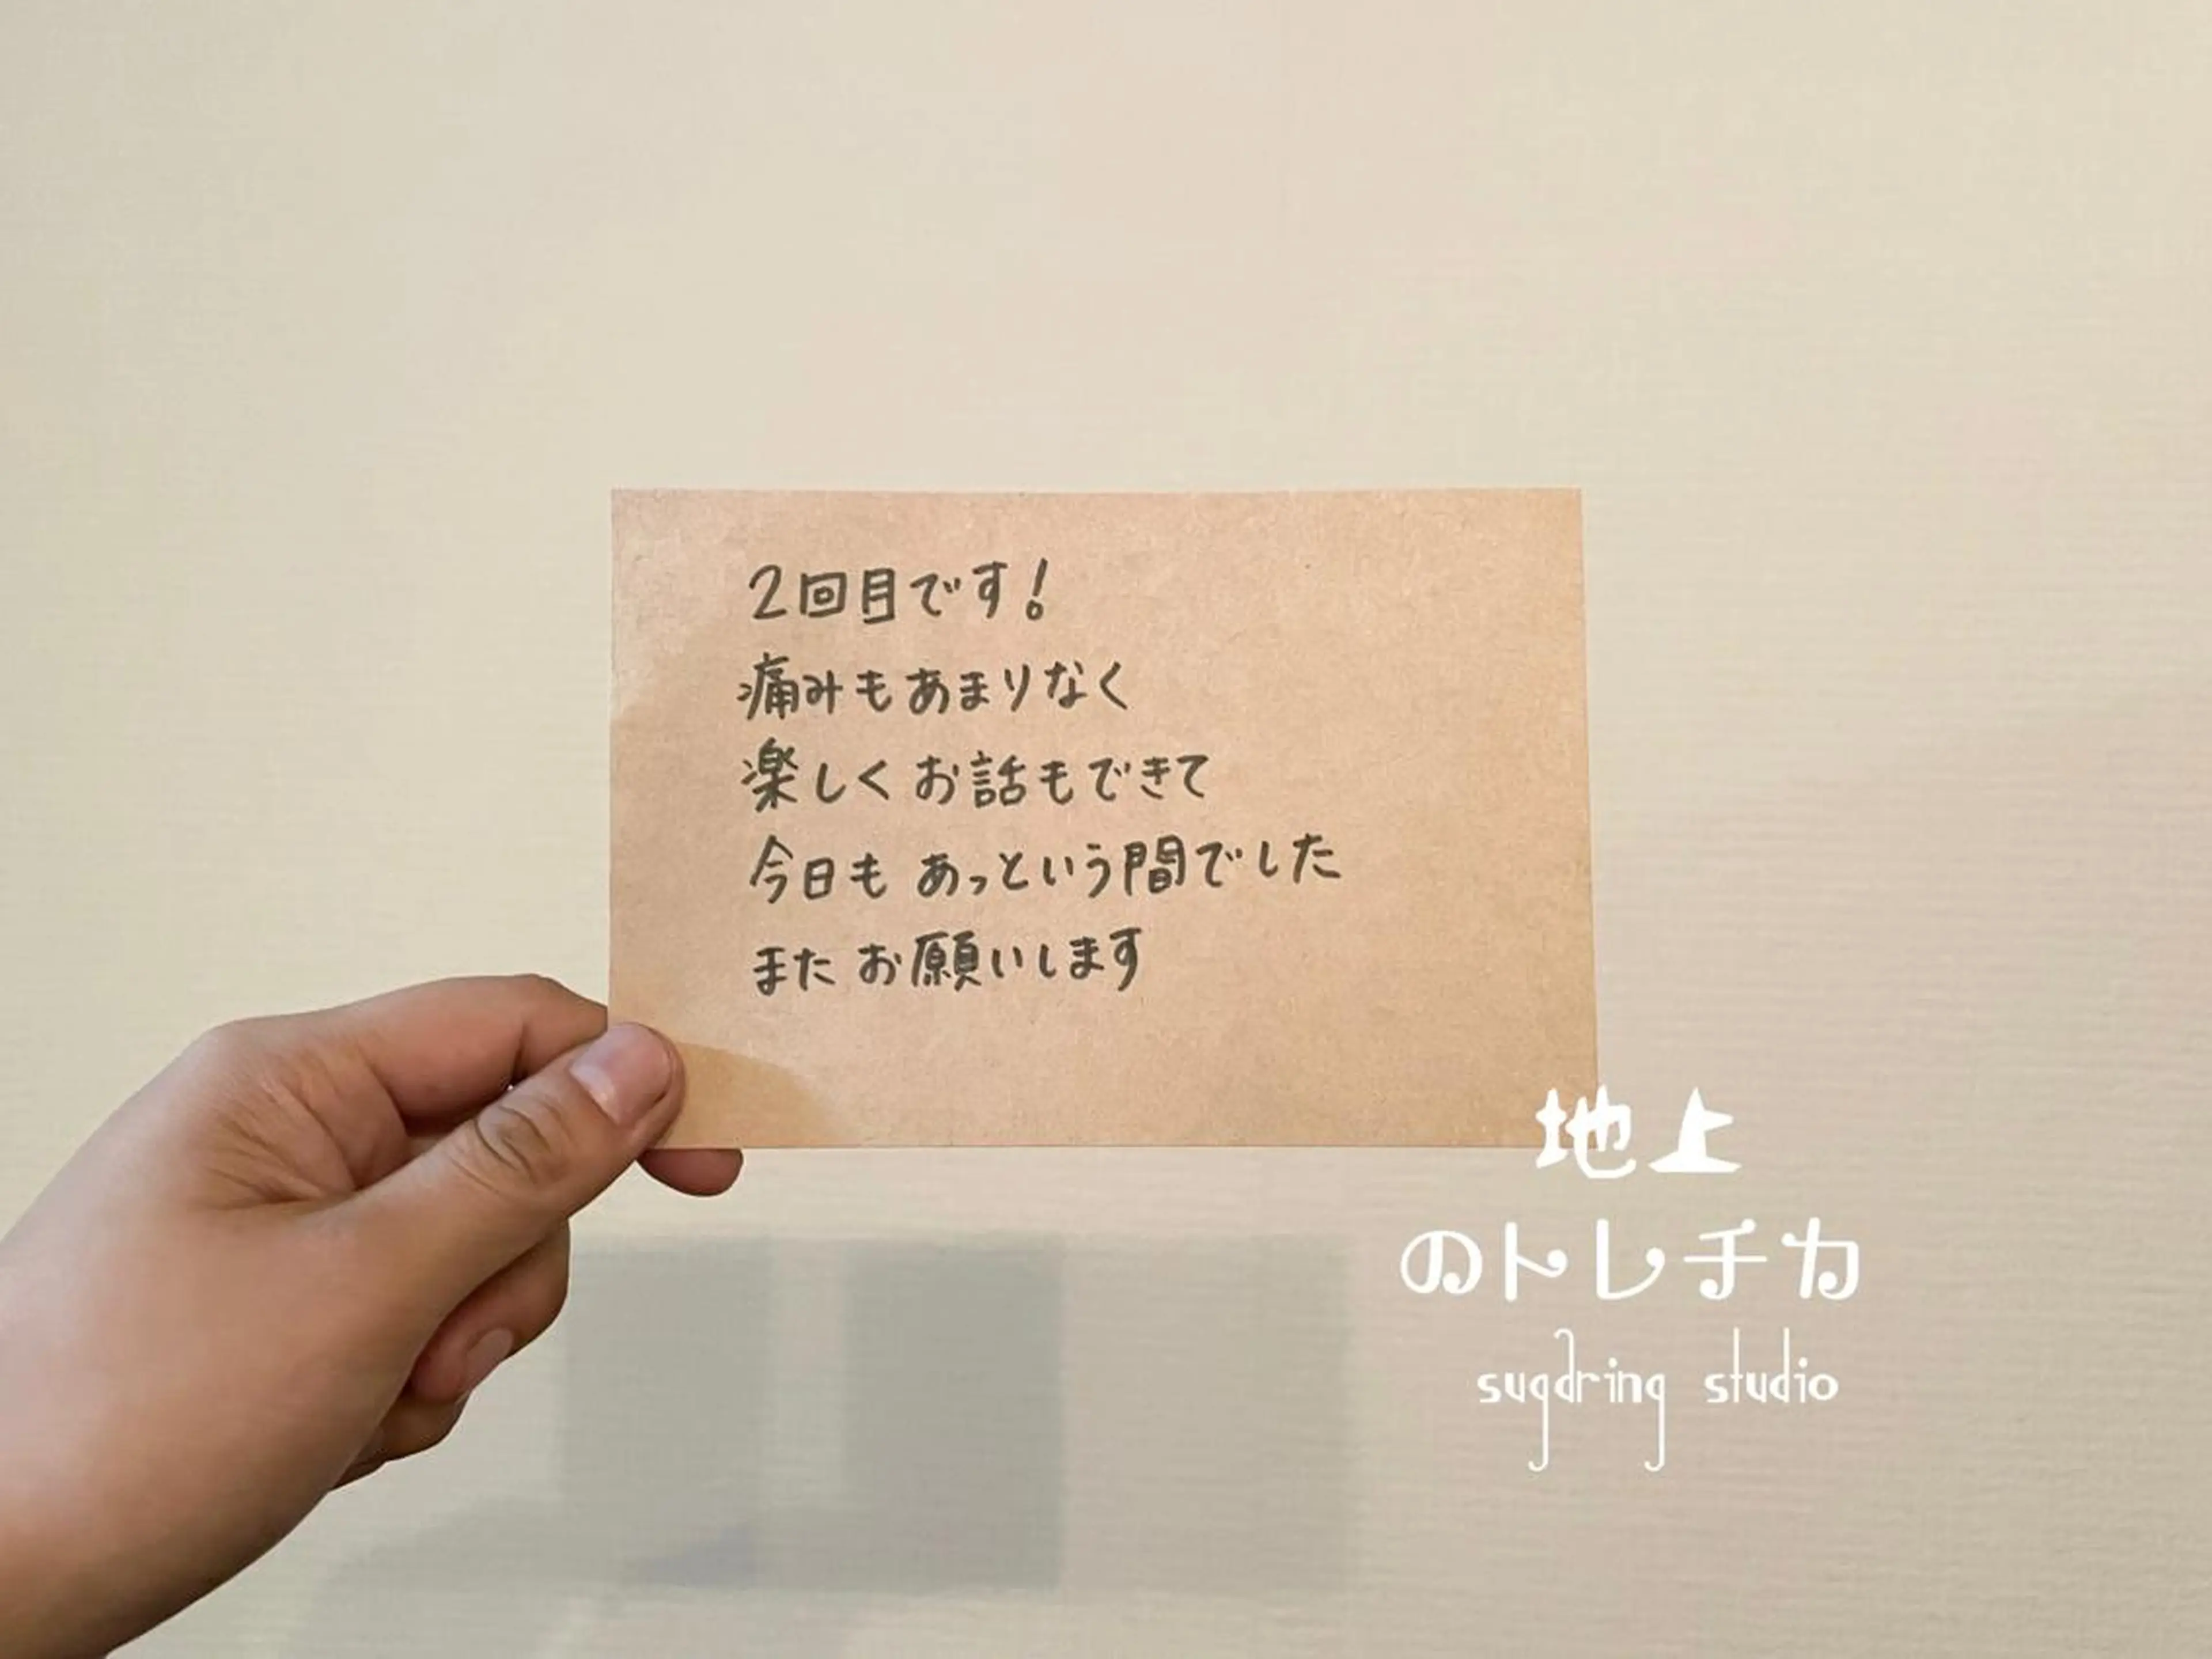 2回目です!
痛みもあまりなく
楽しくお話もできて
今日も あっという間でした
また お願いします
地上
のトレチカ
sugdring studio